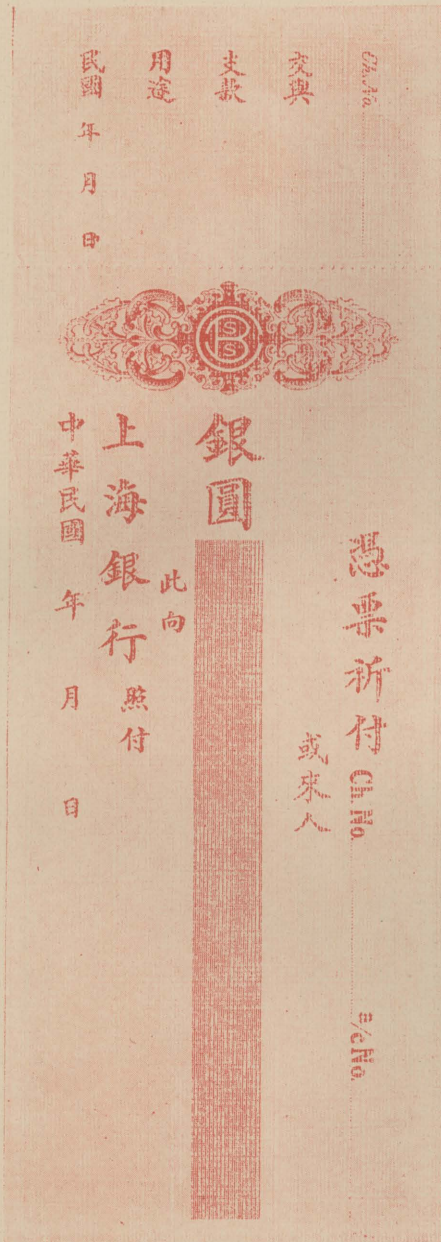 Ch. No.
交與
支款
用途
民國 年 月 日
SBSC
憑票祈付 Ch. No. a/c No.
或來人
銀圓
此向
上海銀行照付
中華民國 年 月 日